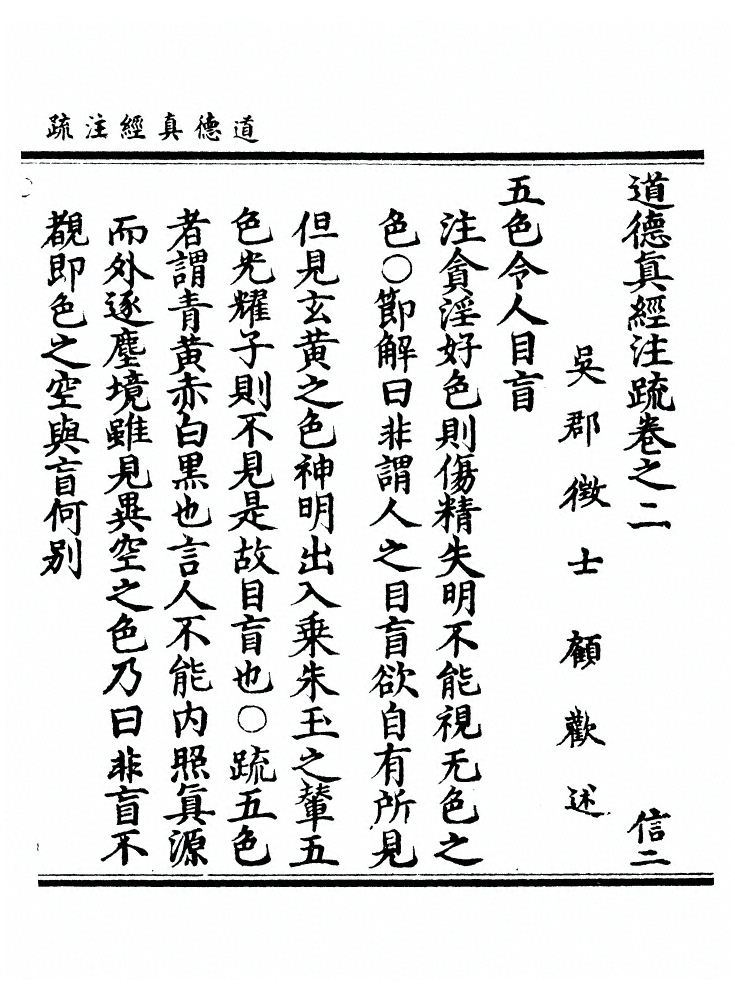 道德真經注疏
道德眞經注疏卷之二 信二
吳郡徵士顧歡述
五色令人目盲
注貪淫好色則傷精失明不能視无色之
色○節解曰非謂人之目盲欲自有所見
但見玄黃之色神明出入乗朱玉之輦五
色光耀子則不見是故目盲也○疏五色
者謂青黃赤白黑也言人不能內照眞源
而外逐塵境雖見異空之色乃曰非盲不
覩即色之空與盲何別